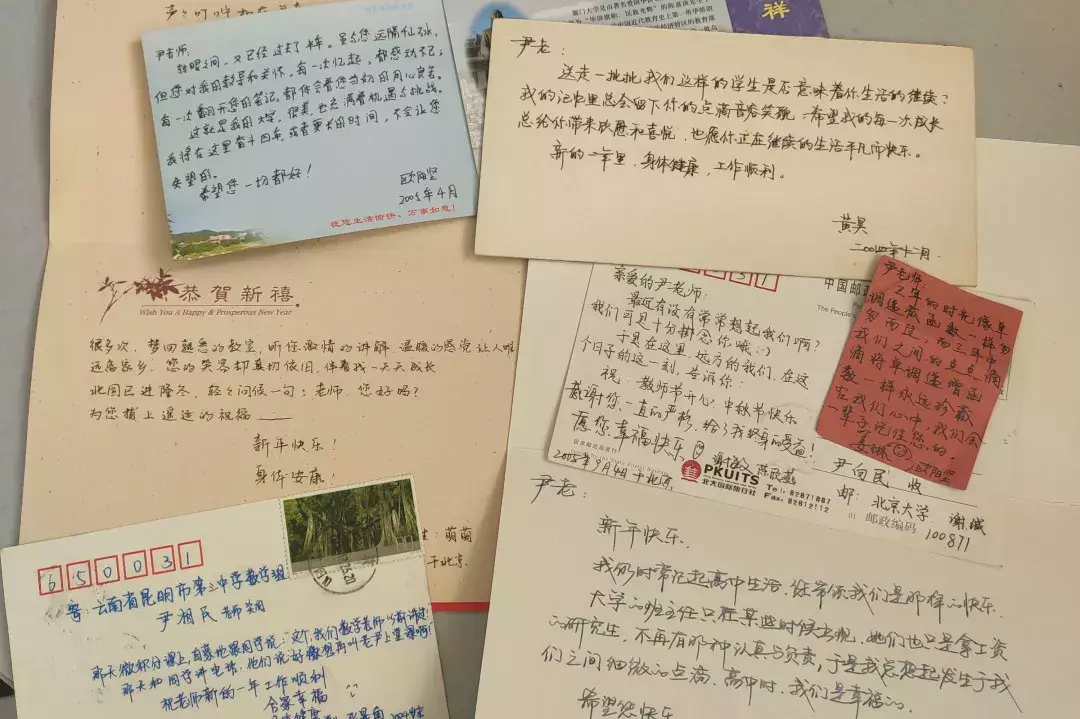 尹老师,
转眼之间,又已经过去了半年。虽与您远隔仙水,
但您对我的教导和关怀,有一次忆起,都感动不已;
有一次翻开您的笔记,都体会着您当初的用心良苦。
这就是我的大学,很美,也充满着机遇与挑战。
我将在这里奋斗四年,或者更长的时间,不会让您
失望的。
希望您一切都好!
欧阳坚
2005年4月
祝您生活愉快、万事如意!
祥
尹老:
送走一批批我们这样的学生是否意味着你生活的继续?
我的记忆里总会留下你的点滴音容笑貌,希望我的每一次成长
总给你带来欣慰和喜悦,也愿你正在继续的生活平凡而快乐。
新的一年里,身体健康,工作顺利。
黄昊
恭贺新禧
Wish You A Happy & Prosperous New Year
很多次,梦回熟悉的教室,听您激情的讲解,温暖的感觉让人难
远离家乡,您的笑容却真切依旧,伴着我一天天成长
北国已进隆冬,轻轻问候一句:老师,您好吗?
为您捎上遥远的祝福——
新年快乐!
身体安康!
生:萌萌
于北京.
亲爱的尹老师:
最近有没有常常想起我们啊?
我们可是十分挂念你哦:)
于是在这里,远方的我们,在这
个日子的这一刻,告诉你:
祝 教师节开心,中秋节快乐
感谢您一直的严格,给了我终身的受益!
愿您幸福快乐
陈欣燕
2005年9月4日于北京
中国邮政
PKUITS
北大国际旅行社
Tel: 62671887
Fax: 62612112
尹向民 收
邮: 北京大学 谢斌
邮政编码 100871
尹老师:
三年的时光像单
调递减函数一样匆
匆而过,而三年中
我们之间的点点滴
滴将单调递增函
数一样永远珍藏
在我们心中,我们会
一辈子记住您的。
欧阳坚
650031
寄:云南省昆明市第三中学数学组
尹湘民 老师
祝老师新的一年工作顺利
合家幸福
尹老:
新年快乐.
我仍时常记起高中生活,
大学的班主任只在某些时候出现,她们也只是拿工资
的研究生,不再有那种认真与负责,于是我总想起发生于我
们之间细微的点滴,高中时,我们是幸福的
希望您快乐